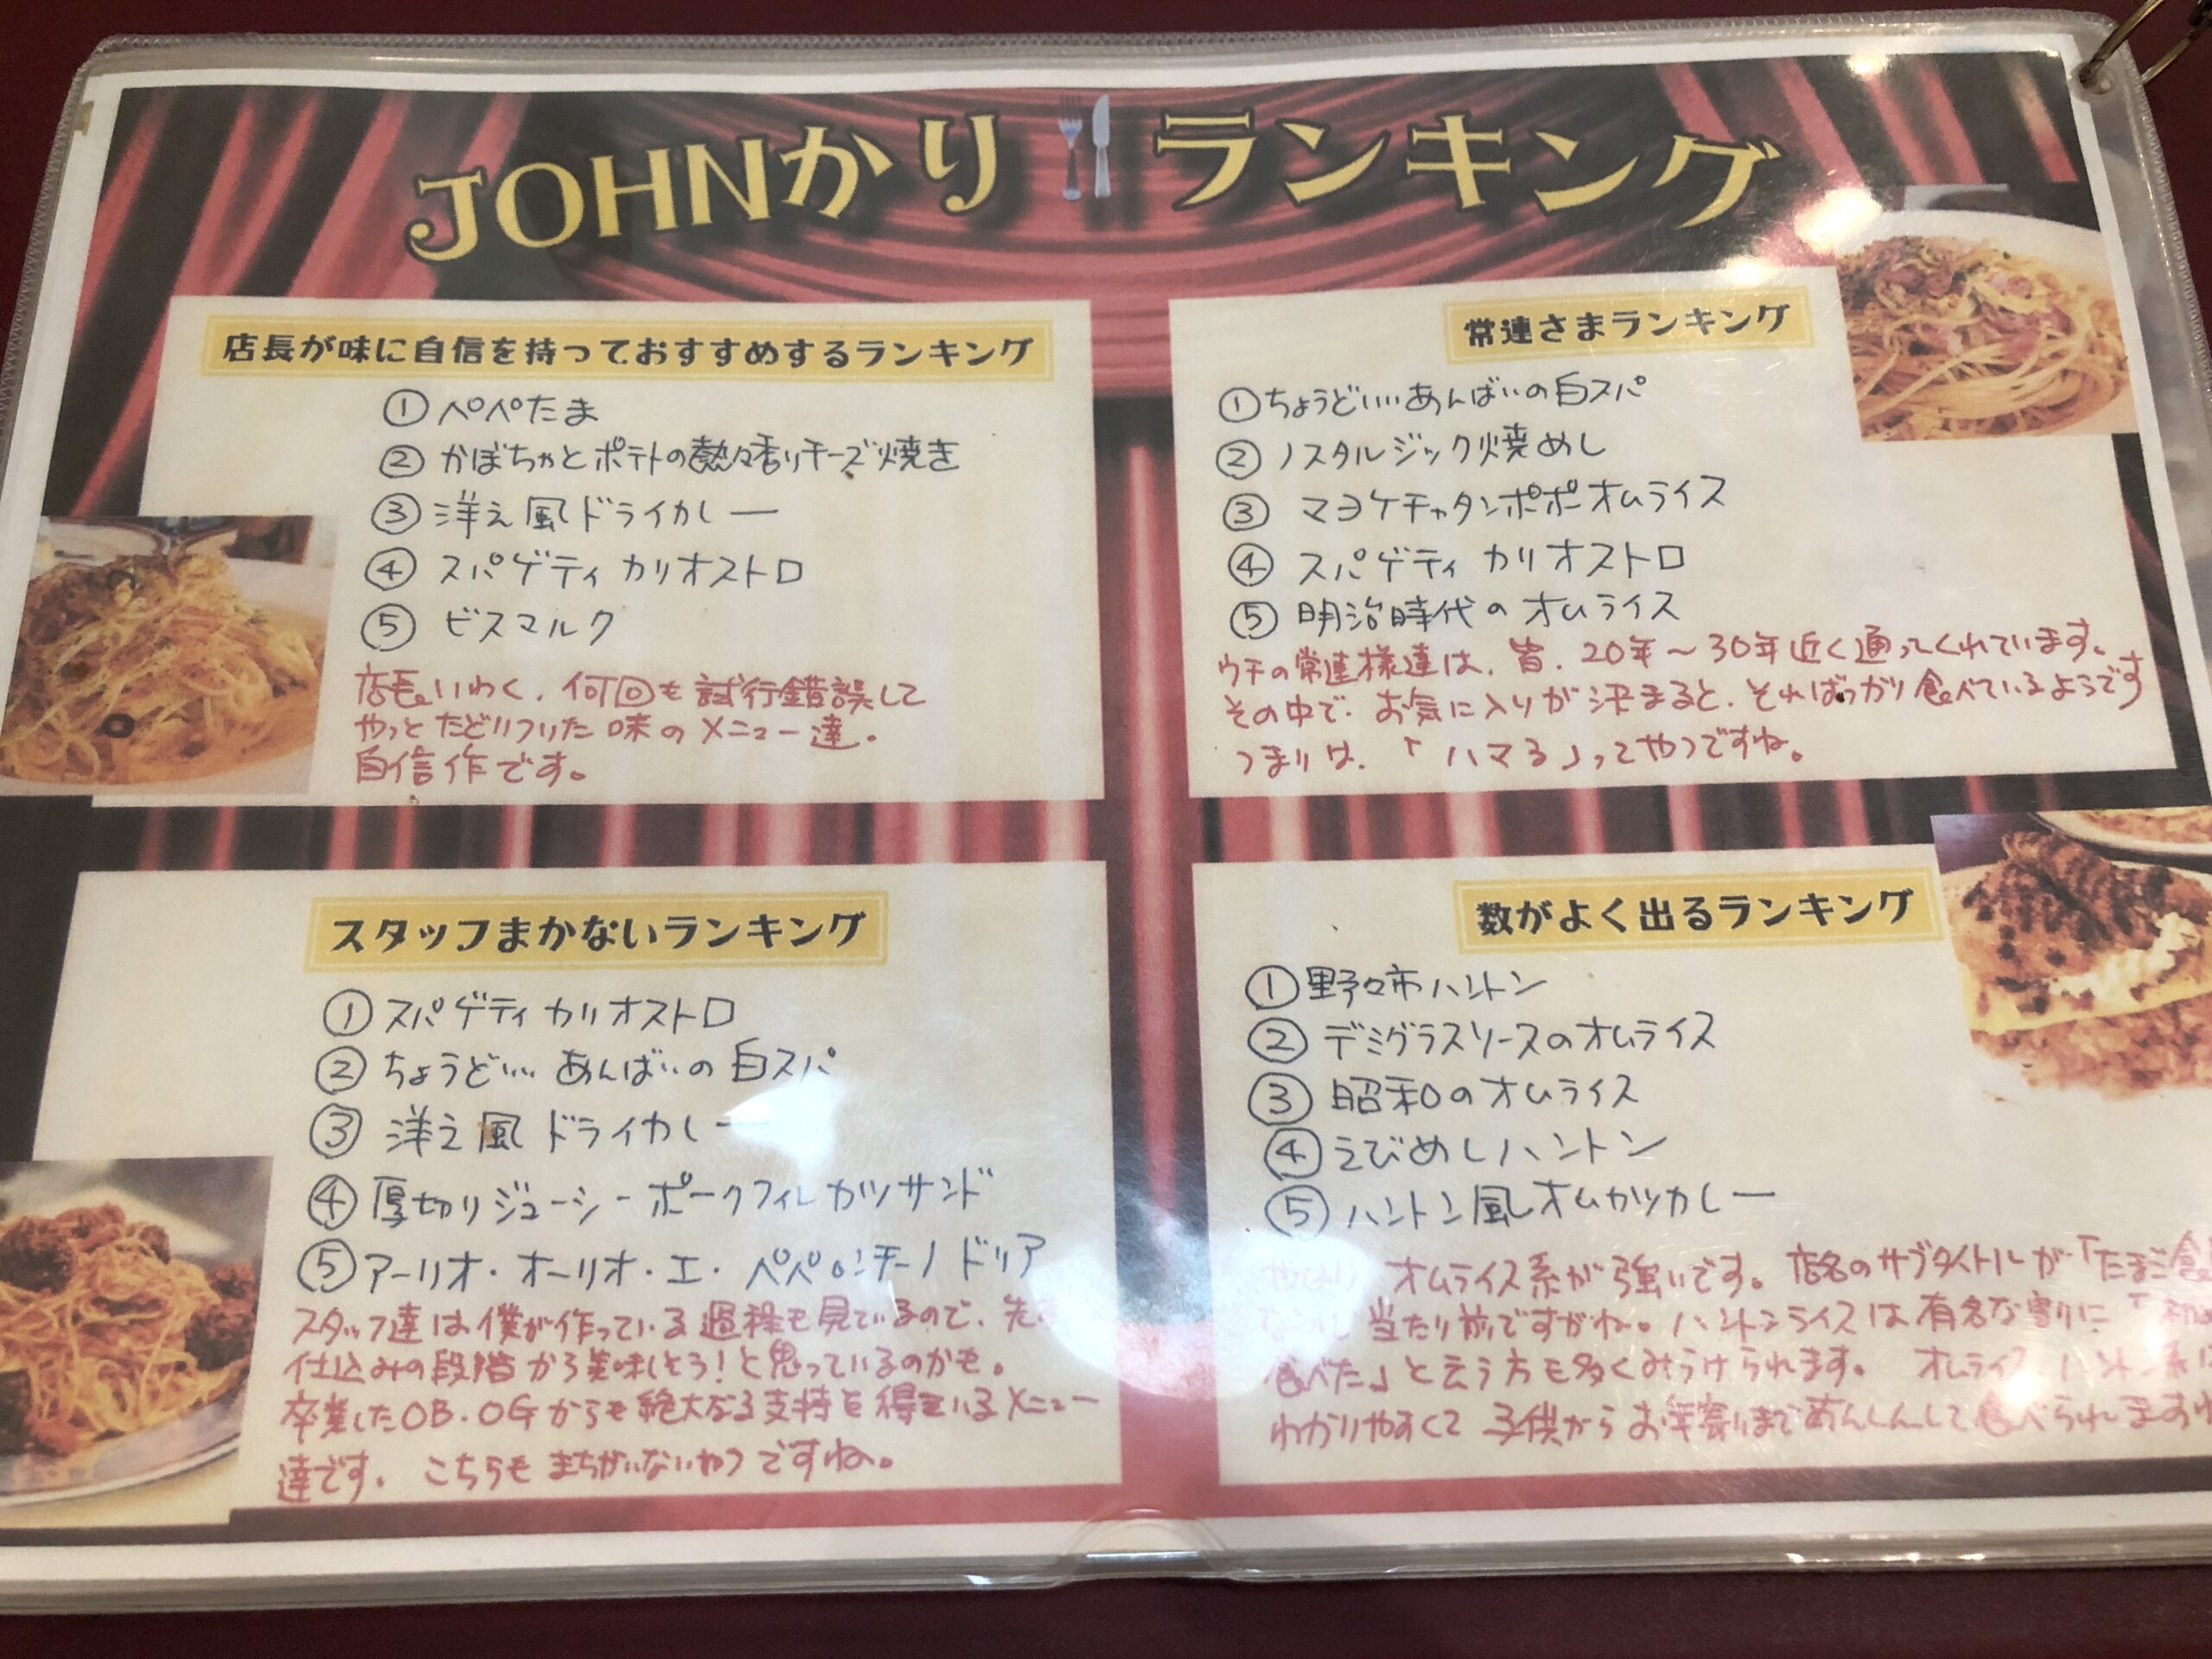 JOHNかりランキング
店長が味に自信を持っておすすめするランキング
① ペペたま
② かぼちゃとポテトの熱々香りチーズ焼き
③ 洋え風ドライカレー
④ スパゲティ カリオストロ
⑤ ビスマルク
店長いわく、何回も試行錯誤して
やっとたどりついた味のメニュー達。
自信作です。
常連さまランキング
① ちょうどいいあんばいの白スパ
② ノスタルジック焼めし
③ マヨケチャタンポポオムライス
④ スパゲティ カリオストロ
⑤ 明治時代のオムライス
ウチの常連様達は、皆、20年～30年近く通ってくれています。
その中で、お気に入りが決まると、そればっかり食べているようです
つまりは、「ハマる」ってやつですね。
スタッフまかないランキング
① スパゲティ カリオストロ
② ちょうどいい あんばいの白スパ
③ 洋え風 ドライカレー
④ 厚切りジューシーポークフィレカツサンド
⑤ アーリオ・オーリオ・エ・ペペロンチーノドリア
スタッフ達は僕が作っている過程も見ているので、先
仕込みの段階から美味しそう！と思っているのかも。
卒業したOB・OGからも絶大なる支持を得ているメニュー
達です。こちらもまちがいないやつですね。
数がよく出るランキング
① 野々市ハントン
② デミグラスソースのオムライス
③ 昭和のオムライス
④ えびめしハントン
⑤ ハントン風オムカツカレー
オムライス系が強いです。店名のサブタイトルが「たまご
当たり前ですがね。ハントンライスは有名な割りに「
食べた」と云う方も多くみうけられます。オムライス
わかりやすくて子供からお年寄りまであんしんして食べられます